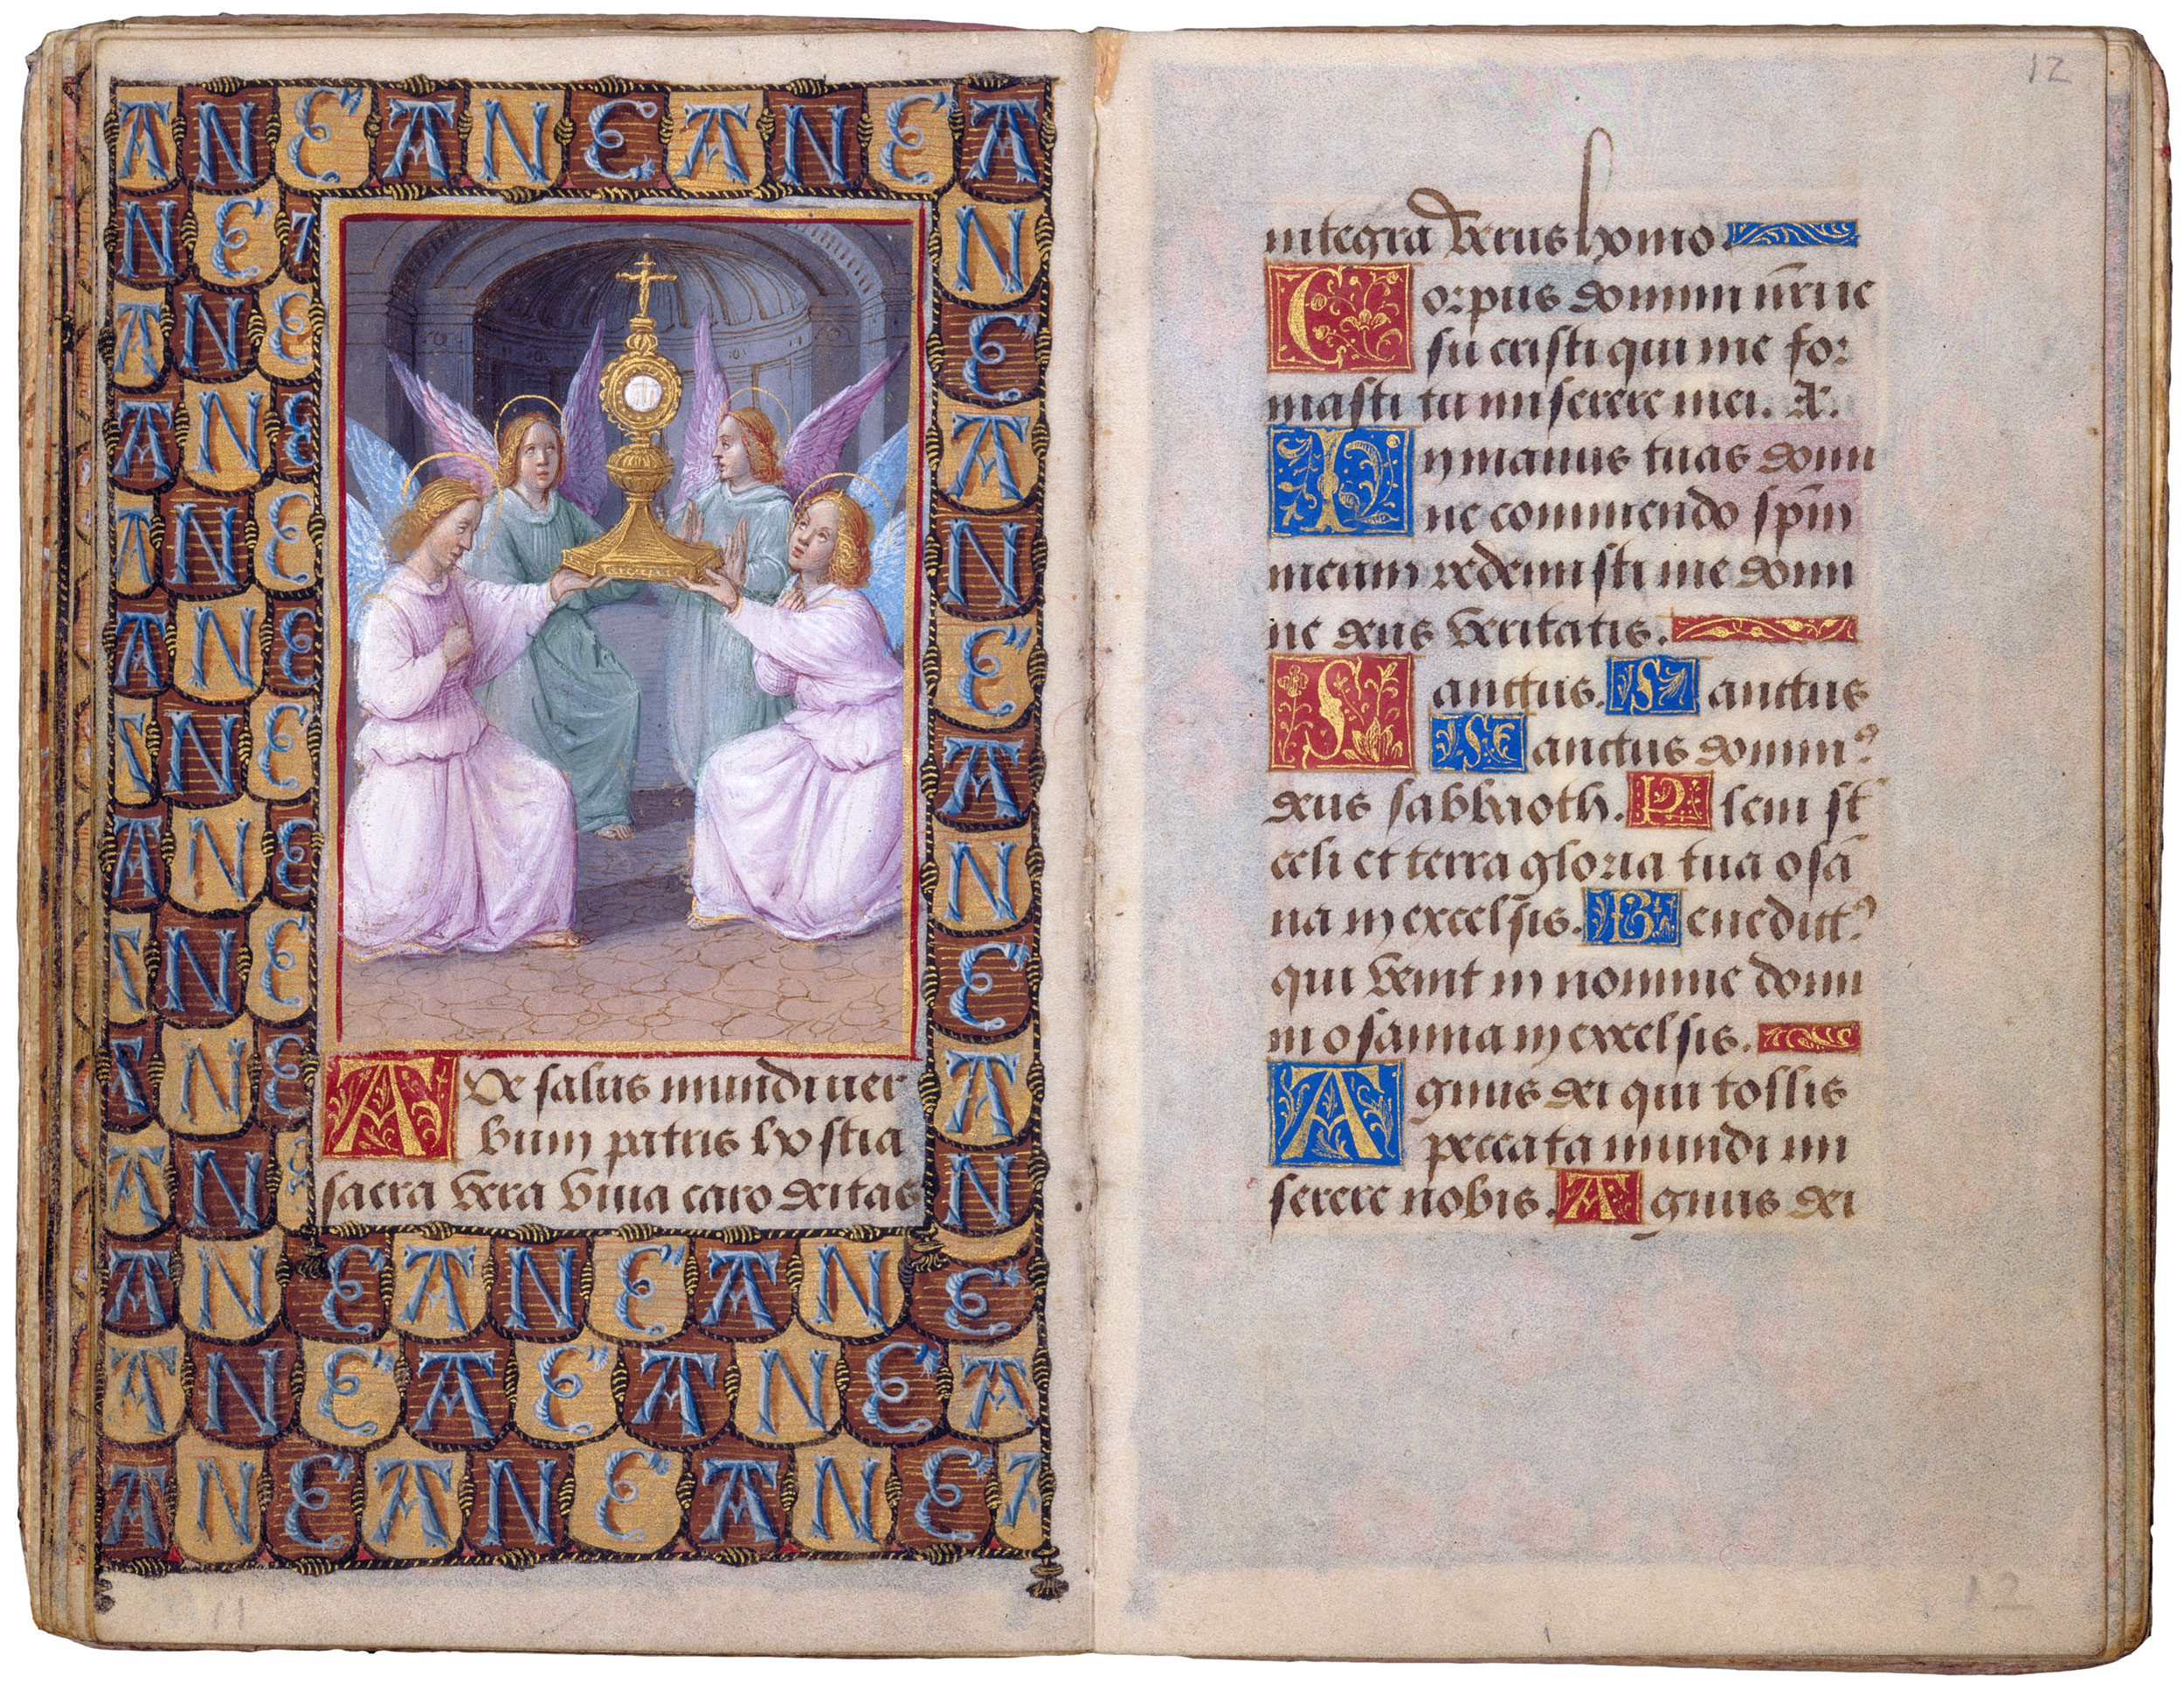 A N E A N E A N E A
N E
A N E
A N E
A N E
A N E
A N E
A N E
A N E
A N E
A N
N
E
A
N
E
A
N
E
A
N
Ave salus mundi ver
bum patris hostia
sacra vera viva caro deitas
A N E A N E A N E
A N E A E A N E A
A N E A N E A N E A
12
integra verus homo.
Corpus domini nr̄i ie
su cristi qui me for
masti tu miserere mei. A.
In manus tuas domi
ne commendo sp̄m
meum redemisti me domi
ne deus veritatis.
Sanctus. Sanctus
Sanctus dominꝰ
deus sabbaoth. Pleni st̄
celi et terra gloria tua osā
na in excelsis. Benedictꝰ
qui venit in nomine domi
ni osanna in excelsis.
Agnus dei qui tollis
peccata mundi mi
serere nobis. Agnus dei
12